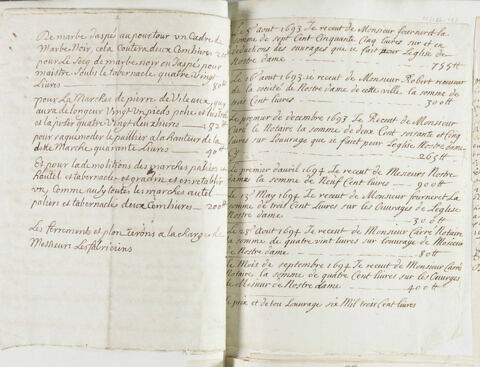 De marbe Jaspé au pourtour un Cadre de
Marbe Noir, cela Coutera deux Cent livres 200
pour Le Socq de marbe noir ou Jaspé pour
maistre Soubs le tabernacle quatre Vingt
Livres 80tt
pour La Marches de pierre de
aura de longeur Vingt un pieds polie et
et la poser quatre Vingt deux livres 82
pour raquemoder le paillier a la hauteur de la
ditte Marche quarante Livres 40
Et pour la demolitions des marches
l'autel et tabernacle et gradin et en retablir
un, Comme aussy toute les marches autel
poliers et tabernacle deux Cent livres 200
Les ferrements et plon Serons a la Charge de
Messieurs Les fabriciens
août 1693 Je recut de Monsieur fourneret la
somme de sept Cent Cinquante Cinq livres sur et en
deductions des ouvrages que se fait pour l'eglise de
Nostre dame 755tt
Le 16 août 1693 Je recut de Monsieur Robert receveur
de la de Nostre dame de cette ville la somme de
trois Cent livres 300tt
Le premier de decembre 1693 Je Recut de Monsieur
Carré le Notaire la somme de deux Cent soixante et Cinq
livres sur Louvrage que se fait pour Leglise Nostre dame
265tt
Le premier d'avril 1694 Je recut de Messieurs Nostre
dame la somme de Neuf Cent livres 900tt
Le 13e May 1694 Je recut de Monsieur fourneret La
somme de trois Cent Livres sur les Ouvrages de Leglise
Nostre dame 300tt
Le 25e août 1694 Je recut de Monsieur Carré Notaire
la somme de quatre vint livres sur louvrage de
de Nostre dame 80tt
Le Mois de septembre 1694 Je recut de Monsieur Carré
Notaire la somme de quatre Cent livres sur les Ouvrges
de Nostre dame 400tt
Le prix et de tou Louvrage six Mil trois Cent livres